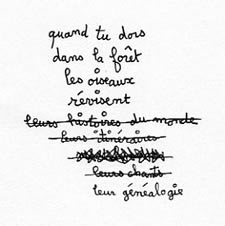 quand tu dors
dans la forêt
les oiseaux
révisent
leurs histoires du monde
leurs itinéraires
leurs chants
leur généalogie